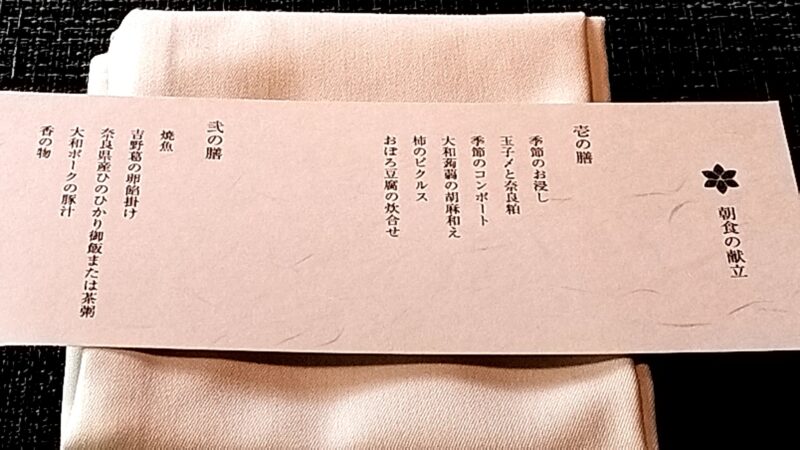 朝食の献立
壱の膳
季節のお浸し
玉子〆と奈良粕
季節のコンポート
大和蒟蒻の胡麻和え
柿のピクルス
おぼろ豆腐の炊合せ
弐の膳
焼魚
吉野葛の卵餡掛け
奈良県産ひのひかり御飯または茶粥
大和ポークの豚汁
香の物